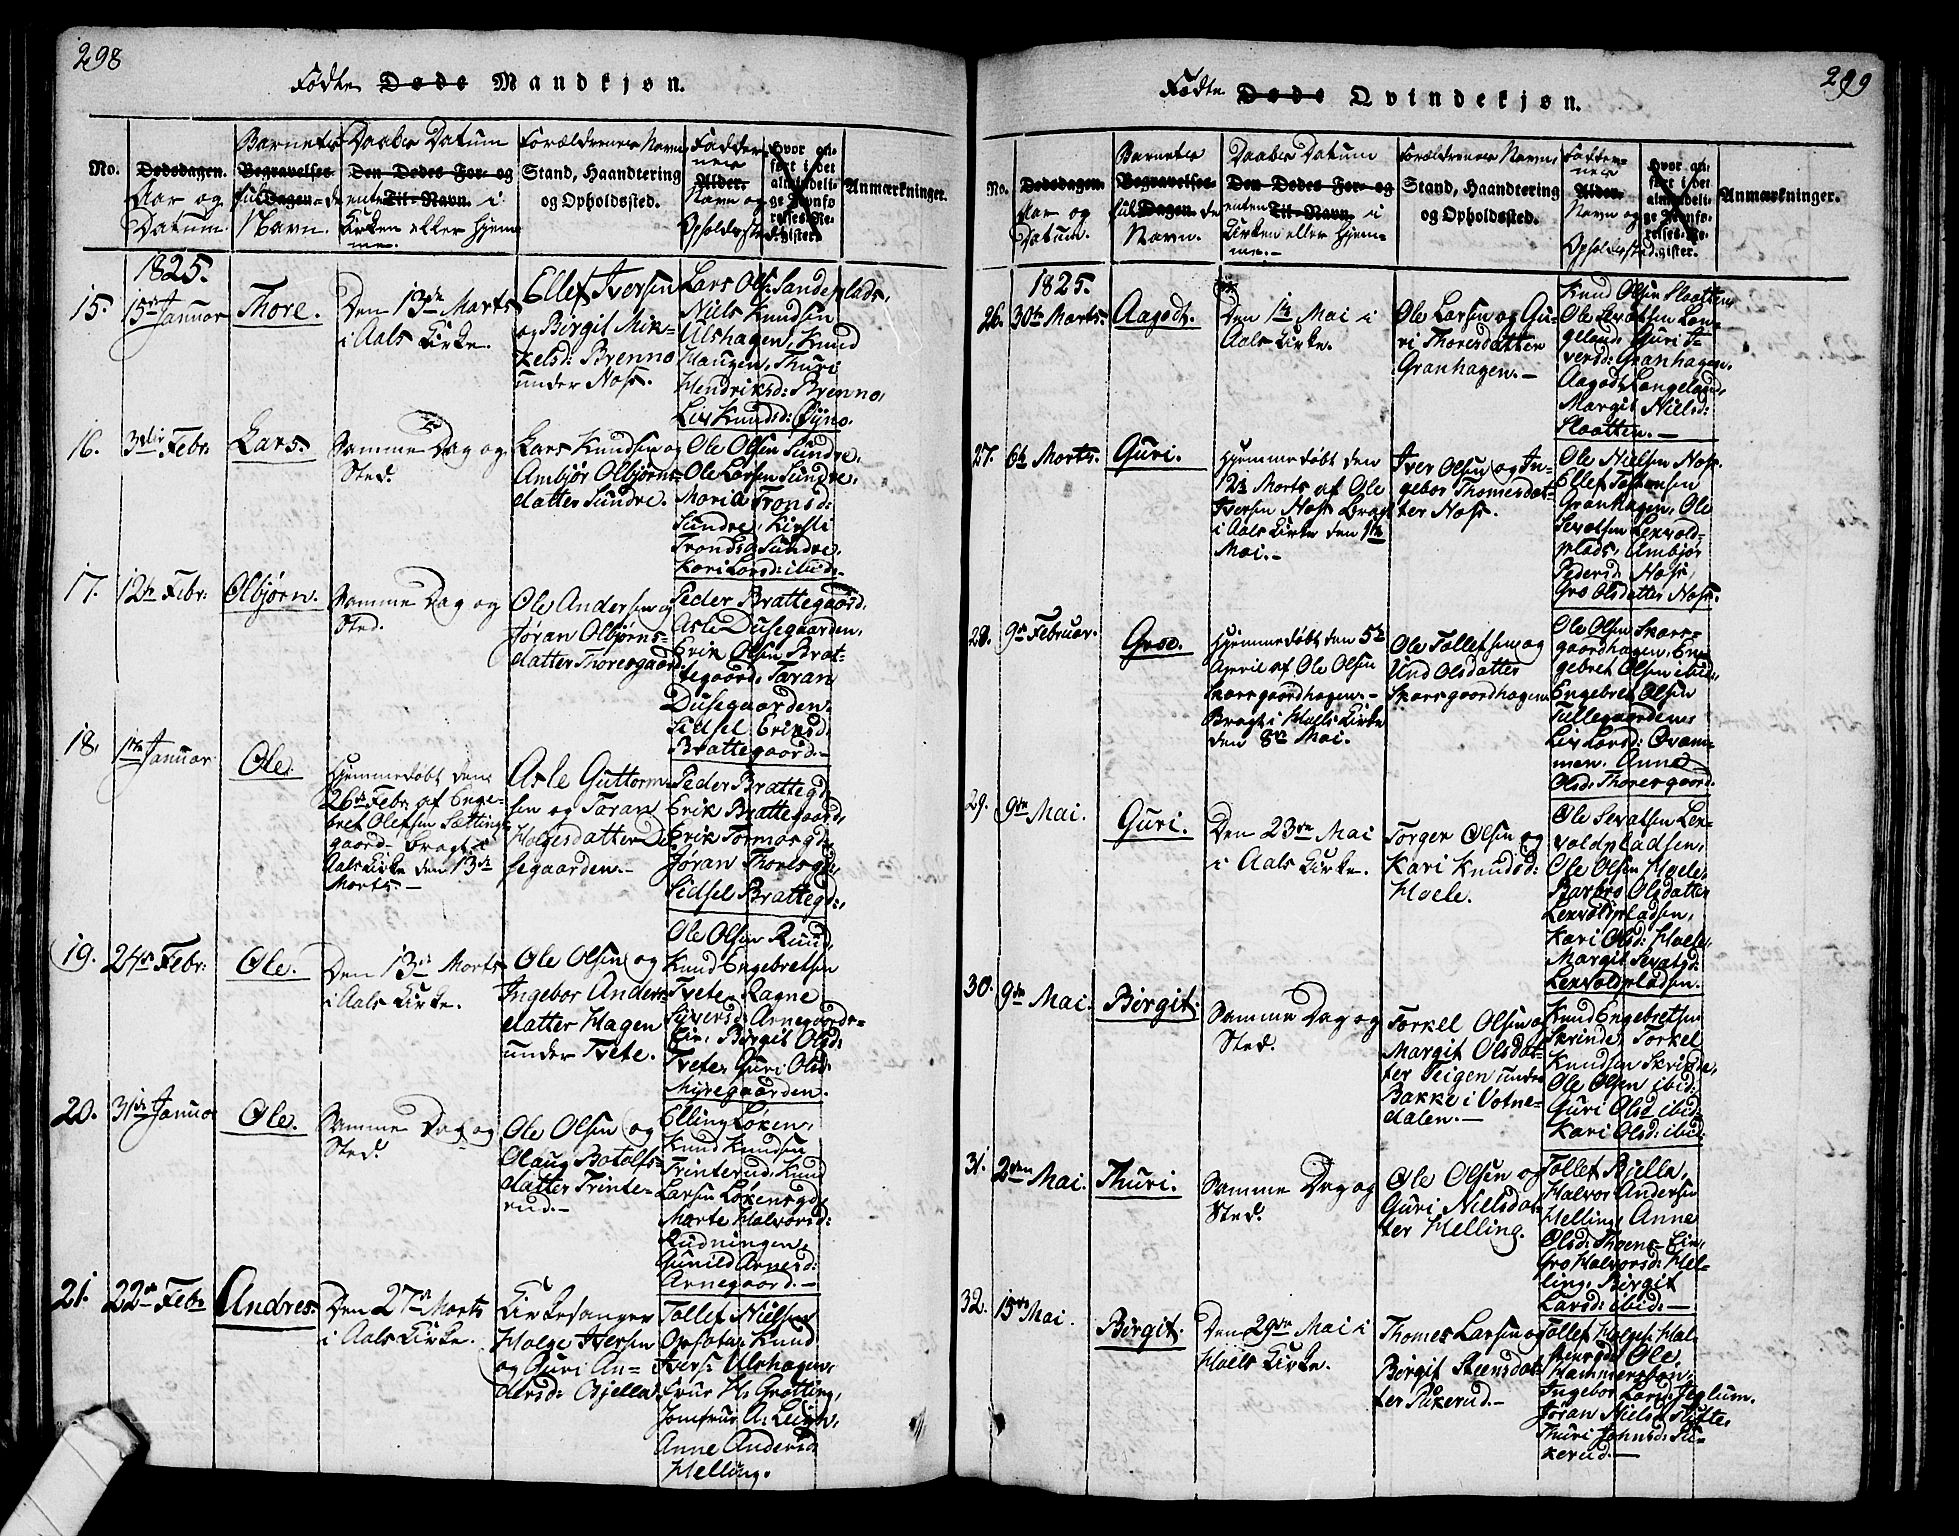 298
Fødte Døde Mandkjøn.
No.
Dødsdagen.
Aar og
Datum.
Barnets
Begravelses
Dagen
Navn.
Daabs Datum
Den Dødes For- og
Til-Navn. i
Kirken eller Hjem-
me.
Forældrenes Navn,
Stand, Haandtering
og Opholdssted.
Fadder-
nes
Alder.
Navn og
Opholdssted
Hvor an-
ført i det
almindeli-
ge Jevnfø-
relses-Re-
gister.
Anmærkninger.
1825.
15.
15de Januar
Thore.
Den 13de Marts
i Aals Kirke.
Ellef Iversen
og Birgit Mik-
kelsd: Brenno
under Næss.
Lars Ols: Sandeplads,
Niels Knudsen
Ulshagen, Knud
Haugen, Thuri
Hendriksd: Brenno,
Liv Knudsd: Øyno.
16.
3die Febr:
Lars.
Samme Dag og
Sted.
Lars Knudsen og
Ambjør Olbjørns-
datter Sundre.
Ole Olsen Sundre,
Ole Larsen Sundre,
Maria Tronsd:
Sundre, Kirsti
Trondsd: Sundre,
Kari Larsd: ibid:
17.
12te Febr:
Olbjørn.
Samme Dag og
Sted.
Ole Andersen og
Jøran Olbjørns-
datter Thoresgaard.
Peder Brattegaard,
Asle Dusegaarden,
Erik Olsen Brat-
tegaard, Taran
Dusegaarden,
Sidsel Eriksd:
Brattegaard.
18.
1ste Januar
Ole.
Hjemmedøbt den
26de Febr: af Enge-
bret Olefsen Sætting-
gaard. Bragt i
Aals Kirke den 13de
Marts.
Asle Guttorm-
sen og Taran
Holgesdatter Du-
segaarden.
Peder Brattegd:
Erik Brattegaard,
Erik Tormosgd:
Jøran Thoresgd:,
Sidsel Brattegd:,
19.
24de Febr:
Ole.
Den 13de Marts
i Aals Kirke.
Ole Olsen og
Ingebor Anders-
datter Hagen
under Tvete.
Ole Olsen Ruud,
Knud Engebretsen
Tvete, Ragne
Siversd: Arnegaards-
Eie, Birgit Olsd:
Tvete, Guri Olsd:
Myregaarden.
20.
31te Januar
Ole.
Samme Dag og
Sted.
Ole Olsen og
Olaug Botolfs-
datter Trinte-
rud.
Elling Løken,
Knud Knudsen
Trinterud, Knud
Larsen Løkensgd:
Marte Halvorsd:
Rudningen,
Gunild Arnesd:
Arnegaard.
21.
22de Febr:
Andres.
Den 27de Marts
i Aals Kirke.
Kirkesanger
Holge Iversen
og Guri An-
dersd: Gjella.
Tollef Nielsen
Opsata, Knud
Ivers: Ulshagen,
Frue H: Grøtting,
Jomfrue A: Leigh,
Anne Andersd:
Helling.
299
Fødte Døde Qvindekjøn.
No.
Dødsdagen.
Aar og
Datum.
Barnets
Begravelses-
Dagen.
Navn.
Daabs Datum
Den Dødes For- og
Til-Navn. i
Kirken eller Hjem-
me.
Forældrenes Navne,
Stand, Haandtering
og Opholdssted.
Fadder-
nes
Alder.
Navn og
Opholdssted.
Hvor an-
ført i det
almindeli-
ge Jevnfø-
relses-Re-
gister.
Anmærkninger.
1825.
26.
30te Marts.
Aagodt.
Den 1te Mai i
Aals Kirke.
Ole Larsen og Gu-
ri Thoresdatter
Granhagen.
Knud Olsen Slaatten,
Ole Sevatsen Lan-
geland, Guri I-
versd: Granhagen,
Aagodt Langeland,
Margit Nielsd:
Slaatten.
27.
6te Marts.
Guri.
Hjemmedøbt den
12te Marts af Ole
Iversen Næss. Bragt
i Aals Kirke den 1ste
Mai.
Iver Olsen og In-
gebor Thomesdat-
ter Næss.
Ole Nielsen Næss,
Ellef
Granhagen, Ole
Sevatsen Lexvold-
plads, Ambjør
Pedersd: Næss,
Gro Olsdatter Næss.
28.
9de Februar.
Groe.
Hjemmedøbt den 5te
April af Ole Olsen
Skarsgaardhagen.
Bragt i Hoels Kirke
den 8de Mai.
Ole Tollefsen og
Und Olsdatter
Skarsgaardhagen.
Ole Olsen Skars-
gaardhagen, En-
gebret Olsen ibid:,
Engebret Olsen
Tullegaarden,
Liv Larsd: Qvam-
men, Anne
Olsd: Thoresgaard.
29.
9de Mai.
Guri.
Den 23de Mai
i Aals Kirke.
Torger Olsen og
Kari Knudsd:
Hoele.
Ole Sevatsen Lex-
voldpladsen,
Ole Olsen Hoele,
Barbro Olsdatter
Lexvoldpladsen,
Kari Olsd: Hoele,
Margit Sevatsd:
Lexvoldpladsen.
30.
9de Mai.
Birgit.
Samme Dag og
Sted.
Torkel Olsen og
Margit Olsdat-
ter Teigen under
Bakke i Votne-
dalen.
Knud Engebretsen
Skrinde, Torkel
Knudsen Skrinde,
Ole Olsen ibid:
Guri Olsd: ibid:
Kari Olsd: ibid:
31.
2den Mai.
Thuri.
Samme Dag og
Sted.
Ole Olsen og
Guri Nielsdat-
ter Helling.
Tollef Biella,
Halvor Andersen
Helling, Anne
Olsd: Thoens-Eie,
Gro Halvorsd: Hel-
ling, Birgit
Larsd: ibid:
32.
15de Mai.
Birgit.
Den 29de Mai i
Hoels Kirke.
Thomes Larsen og
Birgit Steensdat-
ter Rikerud.
Tollef Holges: Hal-
stensgd: Ole
Hammersbøn,
Ingebor Larsd: Jeglum.
Jøran Nielsd: Tufte,
Thuri Johnsd: Ri-
kerud.